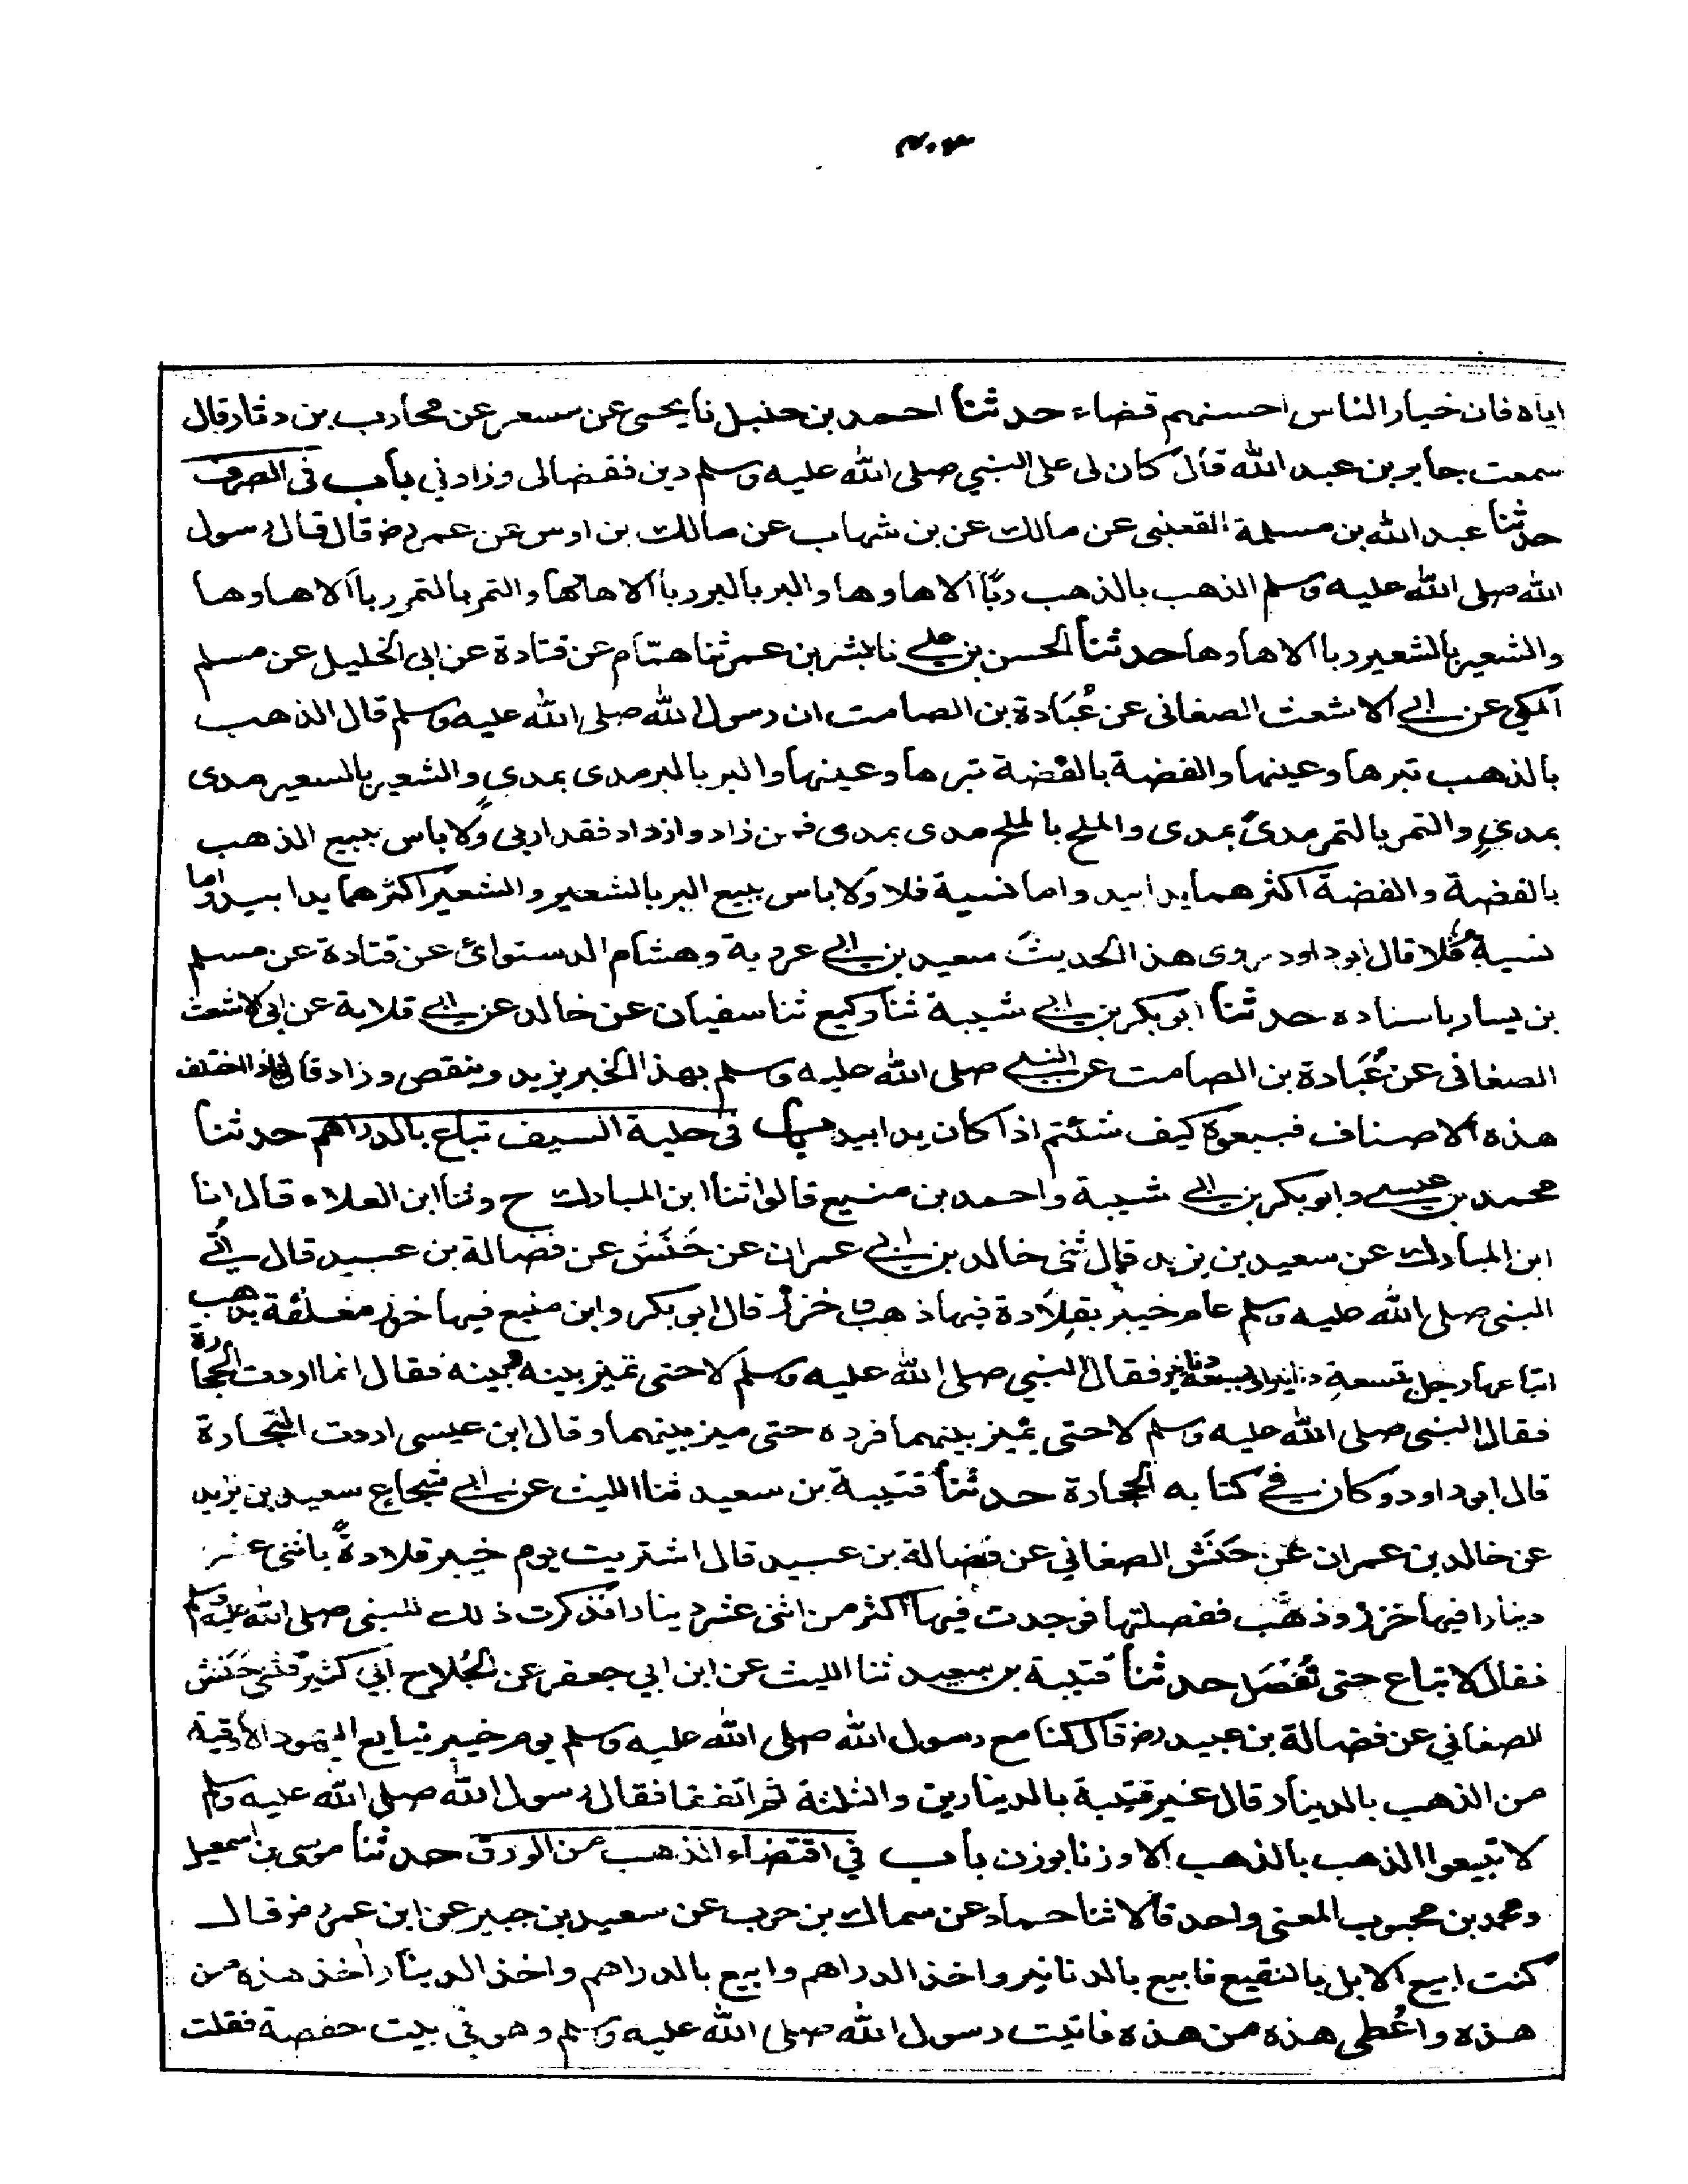 اياه فان خيار الناس احسنهم قضاء حدثنا احمد بن حنبل نا يحيى عن مسعر عن محارب بن دثار قال
سمعت جابر بن عبد الله قال كان لى على النبي صلى الله عليه وسلم دين فقضالى وزادني باب فى الصرف
حدثنا عبد الله بن مسلمة القعنبى عن مالك عن بن شهاب عن مالك بن اوس عن عمر رض قال قال رسول
الله صلى الله عليه وسلم الذهب بالذهب ربًا الا ها وها والبر بالبر ربا الا ها وها والتمر بالتمر ربا الا ها وها
والشعير بالشعير ربا الا ها وها حدثنا الحسن بن علي نا بشر بن عمر ثنا همّام عن قتادة عن ابى الخليل عن مسلم
المكي عن ابي الاشعث الصغانى عن عُبَادة بن الصامت ان رسول الله صلى الله عليه وسلم قال الذهب
بالذهب تبرها وعينها والفضة بالفضة تبرها وعينها والبر بالبر مدى بمدي والشعير بالسعير مدى
بمدي والتمر بالتمر مدىً بمدى والملح بالملح مدى بمدى فمن زاد وازداد فقد اربى ولا باس ببيع الذهب
بالفضة والفضة اكثرهما يدا بيد واما نسية فلا ولا باس ببيع البر بالشعير والشعير اكثرهما يدا بيد واما
نسية فلا قال ابو داود روى هذا الحديث سعيد بن ابي عروبة وهشام الدستوائ عن قتادة عن مسلم
بن يسار باسناده حدثنا ابو بكر بن ابي شيبة ثنا وكيع ثنا سفيان عن خالد عن ابي قلابة عن ابى الاشعث
الصغانى عن عُبَادة بن الصامت عن النبي صلى الله عليه وسلم بهذا الخبر يزيد وينقص وزاد قال فاذا اختلف
هذه الاصناف فبيعوه كيف شئتم اذا كان يدا بيد باب فى حلية السيف تباع بالدراهم حدثنا
محمد بن عيسى وابو بكر بن ابي شيبة واحمد بن منيع قالوا ثنا ابن المبارك ح وثنا ابن العلاء قال انا
ابن المبارك عن سعيد بن يزيد قال ثنى خالد بن ابي عمران عن حَنَش عن فضالة بن عبيد قال اُتي
النبى صلى الله عليه وسلم عام خيبر بقِلَادة فيها ذهب خرز قال ابو بكر وابن منيع فيها خرز مغلفة بذهب
ابتاعها رجل بتسعةِ دنانير او بسبعة دنانير فقال النبي صلى الله عليه وسلم لا حتى تميز بينه وبينه فقال انما اردت الحجارة
فقال النبى صلى الله عليه وسلم لا حتى يميز بينهما فرده حتى ميز بينهما وقال ابن عيسى اردت التجارة
قال ابو داود وكان في كتابه الحجارة حدثنا قتيبة بن سعيد ثنا الليث عن ابي شجاع سعيد بن يزيد
عن خالد بن عمران عن حَنَش الصغاني عن فضالة بن عبيد قال اشتريت يوم خيبر قلادةً باثنى عشر
دينارا فيها خرز وذهب ففصلتها فوجدت فيها اكثر من اثنى عشر دينارا فذكرت ذلك للنبى صلى الله عليه وسلم
فقال لا تباع حتى تُفْصَل حدثنا قتيبة بن سعيد ثنا الليث عن ابن ابي جعفر عن الجُلاح ابي كثير ثنى حَنَش
الصغاني عن فضالة بن عبيد رض قال كنا مع رسول الله صلى الله عليه وسلم يوم خيبر نبايع اليهود الاوقية
من الذهب بالدينار قال غير قتيبة بالدينارين والثلثة ثم اتفقا فقال رسول الله صلى الله عليه وسلم
لا تبيعوا الذهب بالذهب الا وزنا بوزن باب في اقتضاء الذهب من الورق حدثنا موسى بن اسمعيل
ومحمد بن محبوب المعنى واحد قالا ثنا حماد عن سماك بن حرب عن سعيد بن جبير عن ابن عمر رض قال
كنت ابيع الابل بالنقيع فابيع بالدنانير واخذ الدراهم وابيع بالدراهم واخذ الدينار اخذ هذه من
هذه واعُطى هذه من هذه فاتيت رسول الله صلى الله عليه وسلم وهو في بيت حفصة فقلت